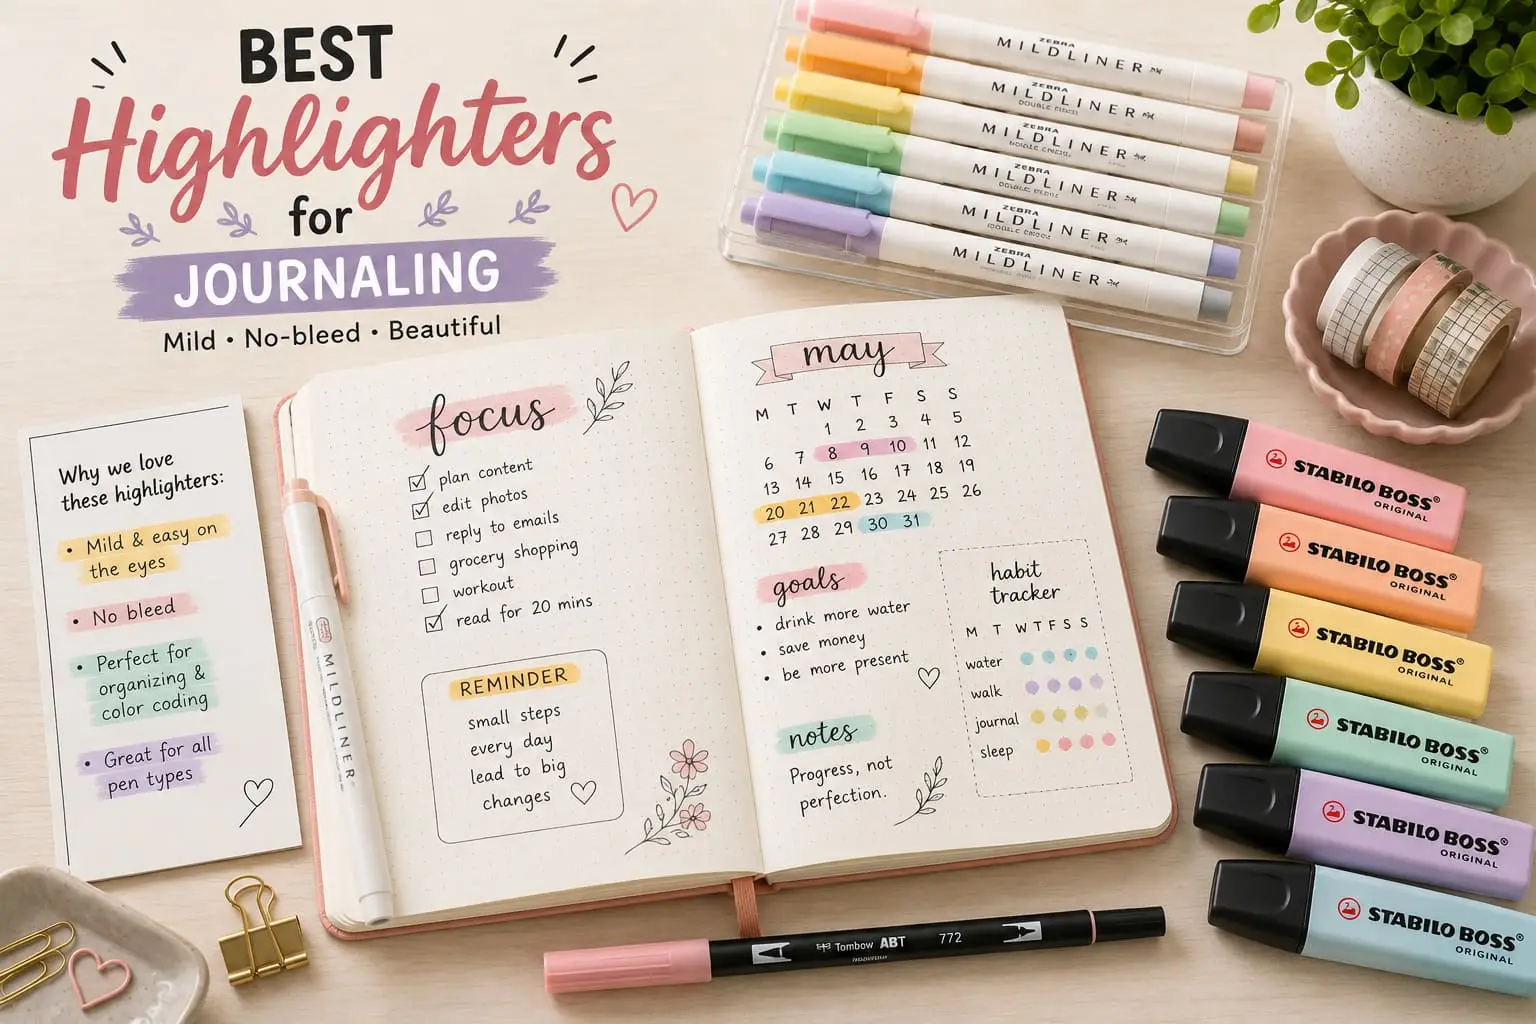 BEST
Highlighters
for
JOURNALING
Mild • No-bleed • Beautiful
Why we love
these highlighters:
• Mild & easy on
the eyes
• No bleed
• Perfect for
organizing &
color coding
• Great for all
pen types
MILDLINER
focus
plan content
edit photos
reply to emails
grocery shopping
workout
read for 20 mins
REMINDER
small steps
every day
lead to big
changes
may
M T W T F S S
1 2 3 4 5
6 7 8 9 10 11 12
13 14 15 16 17 18 19
20 21 22 23 24 25 26
27 28 29 30 31
goals
• drink more water
• save money
• be more present
notes
Progress, not
perfection.
habit
tracker
M T W T F S S
water
walk
journal
sleep
ZEBRA
MILDLINER
ZEBRA
MILDLINER
ZEBRA
MILDLINER
ZEBRA
MILDLINER
ZEBRA
MILDLINER
ZEBRA
MILDLINER
STABILO BOSS®
ORIGINAL
STABILO BOSS®
ORIGINAL
STABILO BOSS®
ORIGINAL
STABILO BOSS®
ORIGINAL
STABILO BOSS®
ORIGINAL
STABILO BOSS®
ORIGINAL
Tombow ABT 772